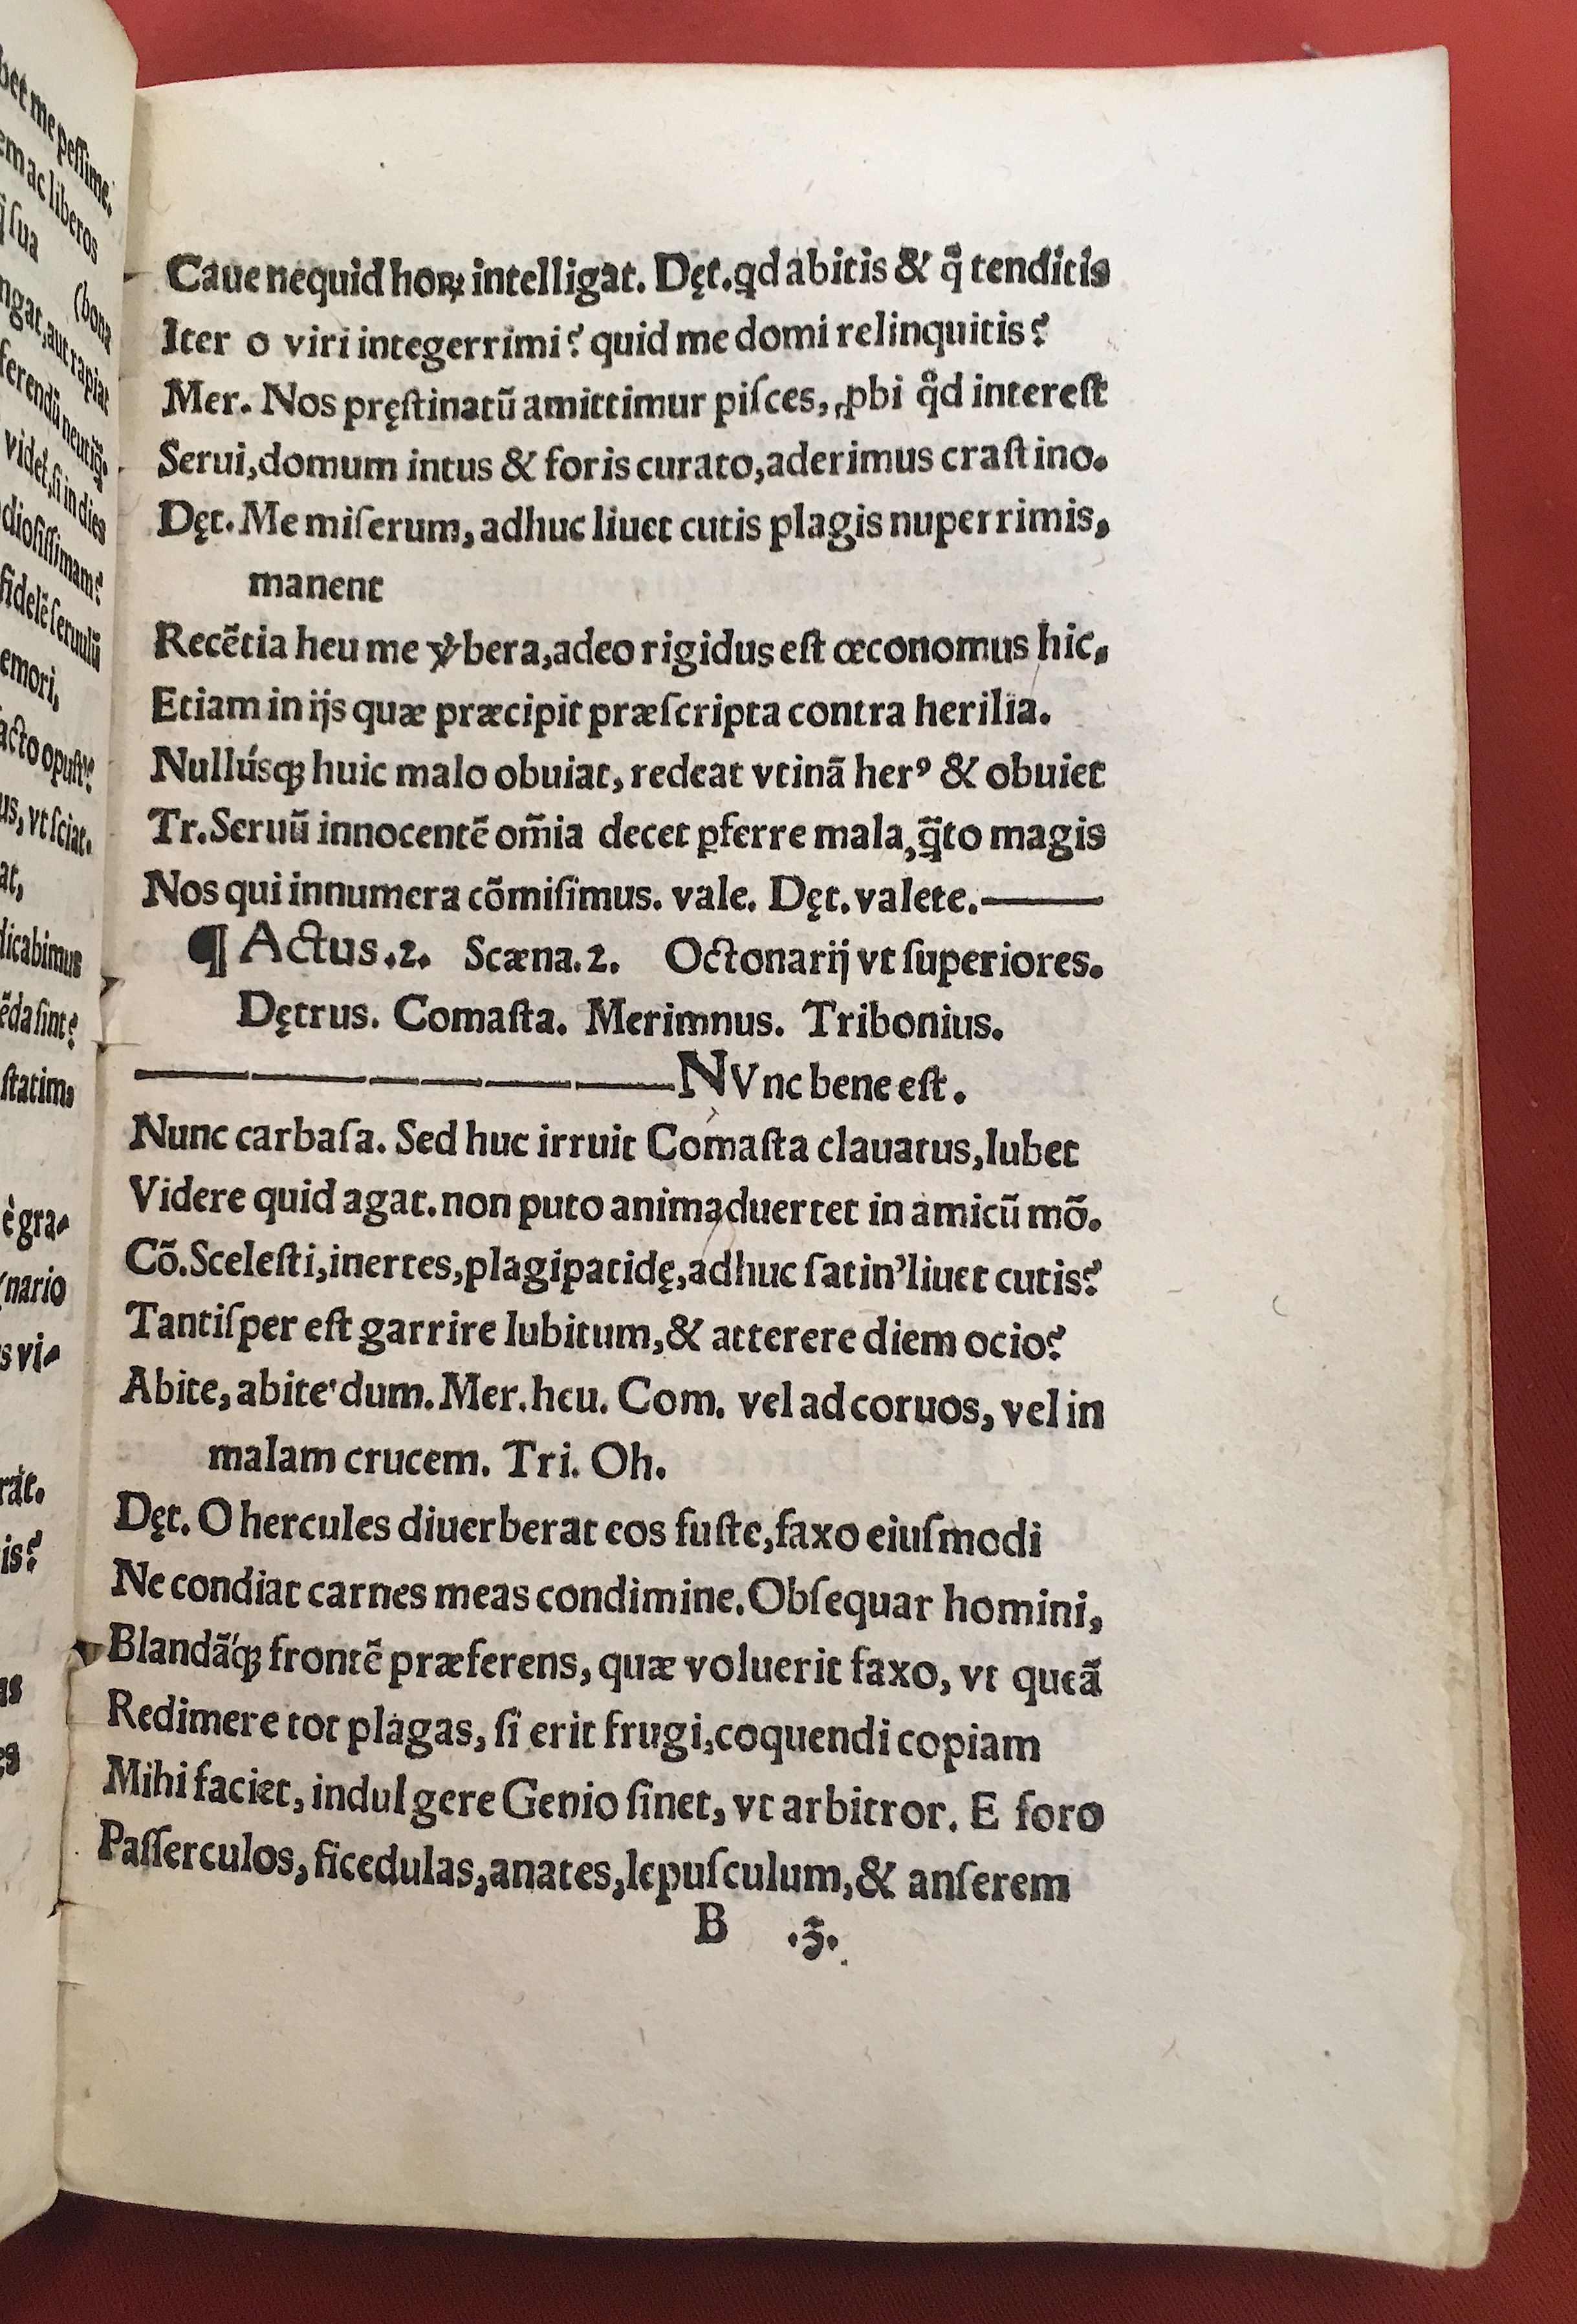 bet me peſſime.
em ac liberos
ſua
(bona
ngat, aut rapiat
ferendū neutiq̃.
videt, ſi in dies
dioſiſſimam?
fidelē ſeruulū
emori,
acto opuſt?
us, vt ſciat.
at,
dicabimus
ēda ſint?
ſtatim,
è gra-
nario
s vi-
rat.
is?
Caue nequid hoꝝ intelligat. Dęt. qd abitis & q̃ tenditis
Iter o viri integerrimi? quid me domi relinquitis?
Mer. Nos pręſtinatū amittimur piſces, ꝓbi qͦd intereſt
Serui, domum intus & foris curato, aderimus craſtino.
Dęt. Me miſerum, adhuc liuet cutis plagis nuperrimis,
manent
Recētia heu me ꝟbera, adeo rigidus eſt œconomus hic,
Etiam in ijs quæ præcipit præſcripta contra herilia.
Nullúsqꝫ huic malo obuiat, redeat vtinā herꝰ & obuiet
Tr. Seruū innocentē om̄ia decet ꝑferre mala, q̃to magis
Nos qui innumera cōmiſimus. vale. Dęt. valete.———
¶ Actus .2. Scæna. 2. Octonarij vt ſuperiores.
Dętrus. Comaſta. Merimnus. Tribonius.
——————NVnc bene eſt.
Nunc carbaſa. Sed huc irruit Comaſta clauatus, lubet
Videre quid agat. non puto animaduertet in amicū mō.
Cō. Sceleſti, inertes, plagipatidę, adhuc ſatin' liuet cutis?
Tantiſper eſt garrire lubitum, & atterere diem ocio?
Abite, abite' dum. Mer. heu. Com. vel ad coruos, vel in
malam crucem. Tri. Oh.
Dęt. O hercules diuerberat eos fuſte, faxo eiuſmodi
Ne condiat carnes meas condimine. Obſequar homini,
Blandā́qꝫ frontē præferens, quæ voluerit faxo, vt queā
Redimere tot plagas, ſi erit frugi, coquendi copiam
Mihi faciet, indulgere Genio ſinet, vt arbitror. E foro
Paſſerculos, ficedulas, anates, lepuſculum, & anſerem
B .3.